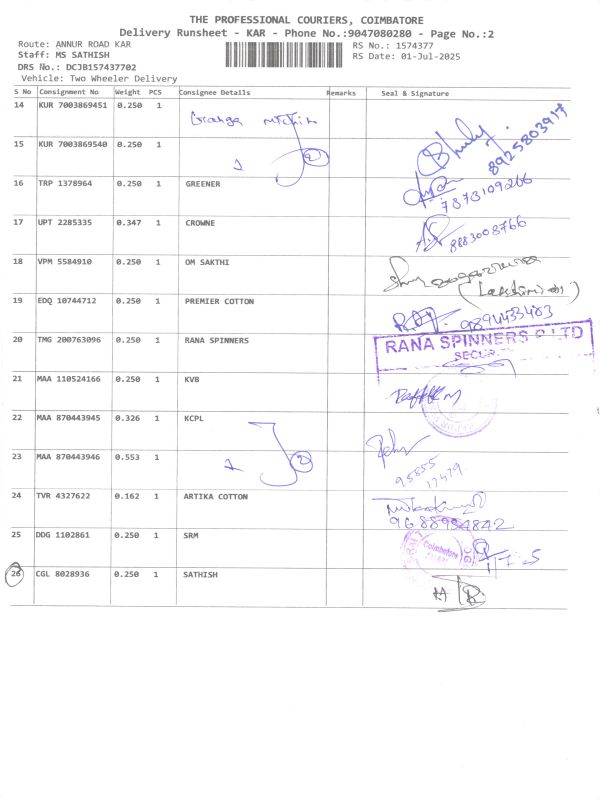 THE PROFESSIONAL COURIERS, COIMBATORE
Delivery Runsheet - KAR - Phone No.:9047080280 - Page No.:2
Route: ANNUR ROAD KAR
RS No.: 1574377
Staff: MS SATHISH
RS Date: 01-Jul-2025
DRS No.: DCJB157437702
Vehicle: Two Wheeler Delivery
S No Consignment No Weight PCS Consignee Details Remarks Seal & Signature
14 KUR 7003869451 0.250 1
15 KUR 7003869540 0.250 1 2
8925803917
16 TRP 1378964 0.250 1 GREENER
7873109266
17 UPT 2285335 0.347 1 CROWNE
8883008766
18 VPM 5584910 0.250 1 OM SAKTHI
19 EDQ 10744712 0.250 1 PREMIER COTTON
9894433483
20 TMG 200763096 0.250 1 RANA SPINNERS
RANA SPINNERS P LTD
SECURITY
21 MAA 110524166 0.250 1 KVB
22 MAA 870443945 0.326 1 KCPL
23 MAA 870443946 0.553 1 2
95855
17479
24 TVR 4327622 0.162 1 ARTIKA COTTON
9688994842
25 DDG 1102861 0.250 1 SRM
Coimbatore
26 CGL 8028936 0.250 1 SATHISH